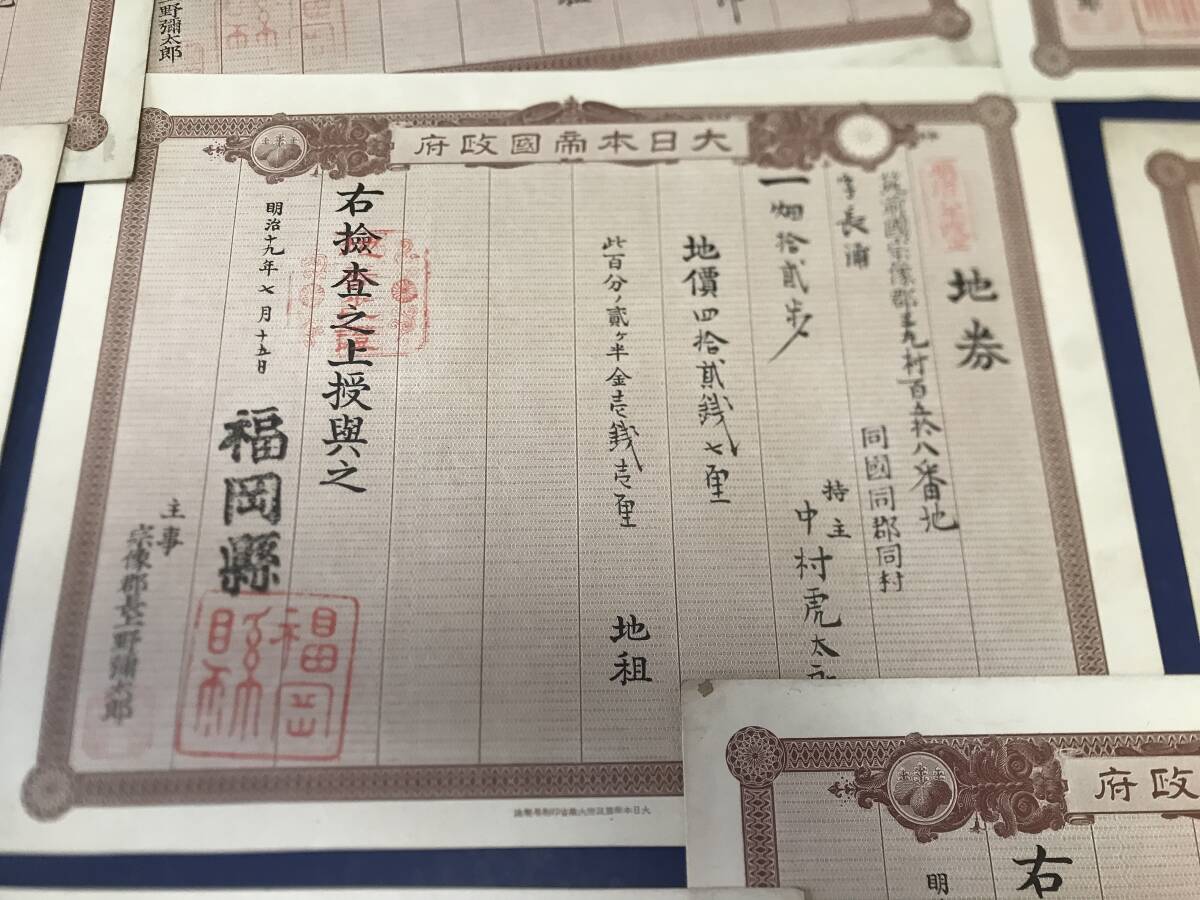 大日本帝國政府
地券
筑前國宗像郡王丸村百五拾八番地
字長浦
同國同郡同村
一畑拾貳歩
持主
中村虎太郎
地價四拾貳銭七厘
此百分ノ貳ヶ半金壱銭壱厘
地租
右檢査之上授與之
明治十九年七月十五日
福岡縣
主事
宗像郡長上野彌太郎
福岡縣
大日本帝國政府大藏省印刷局製造
野彌太郎
政府
右
明